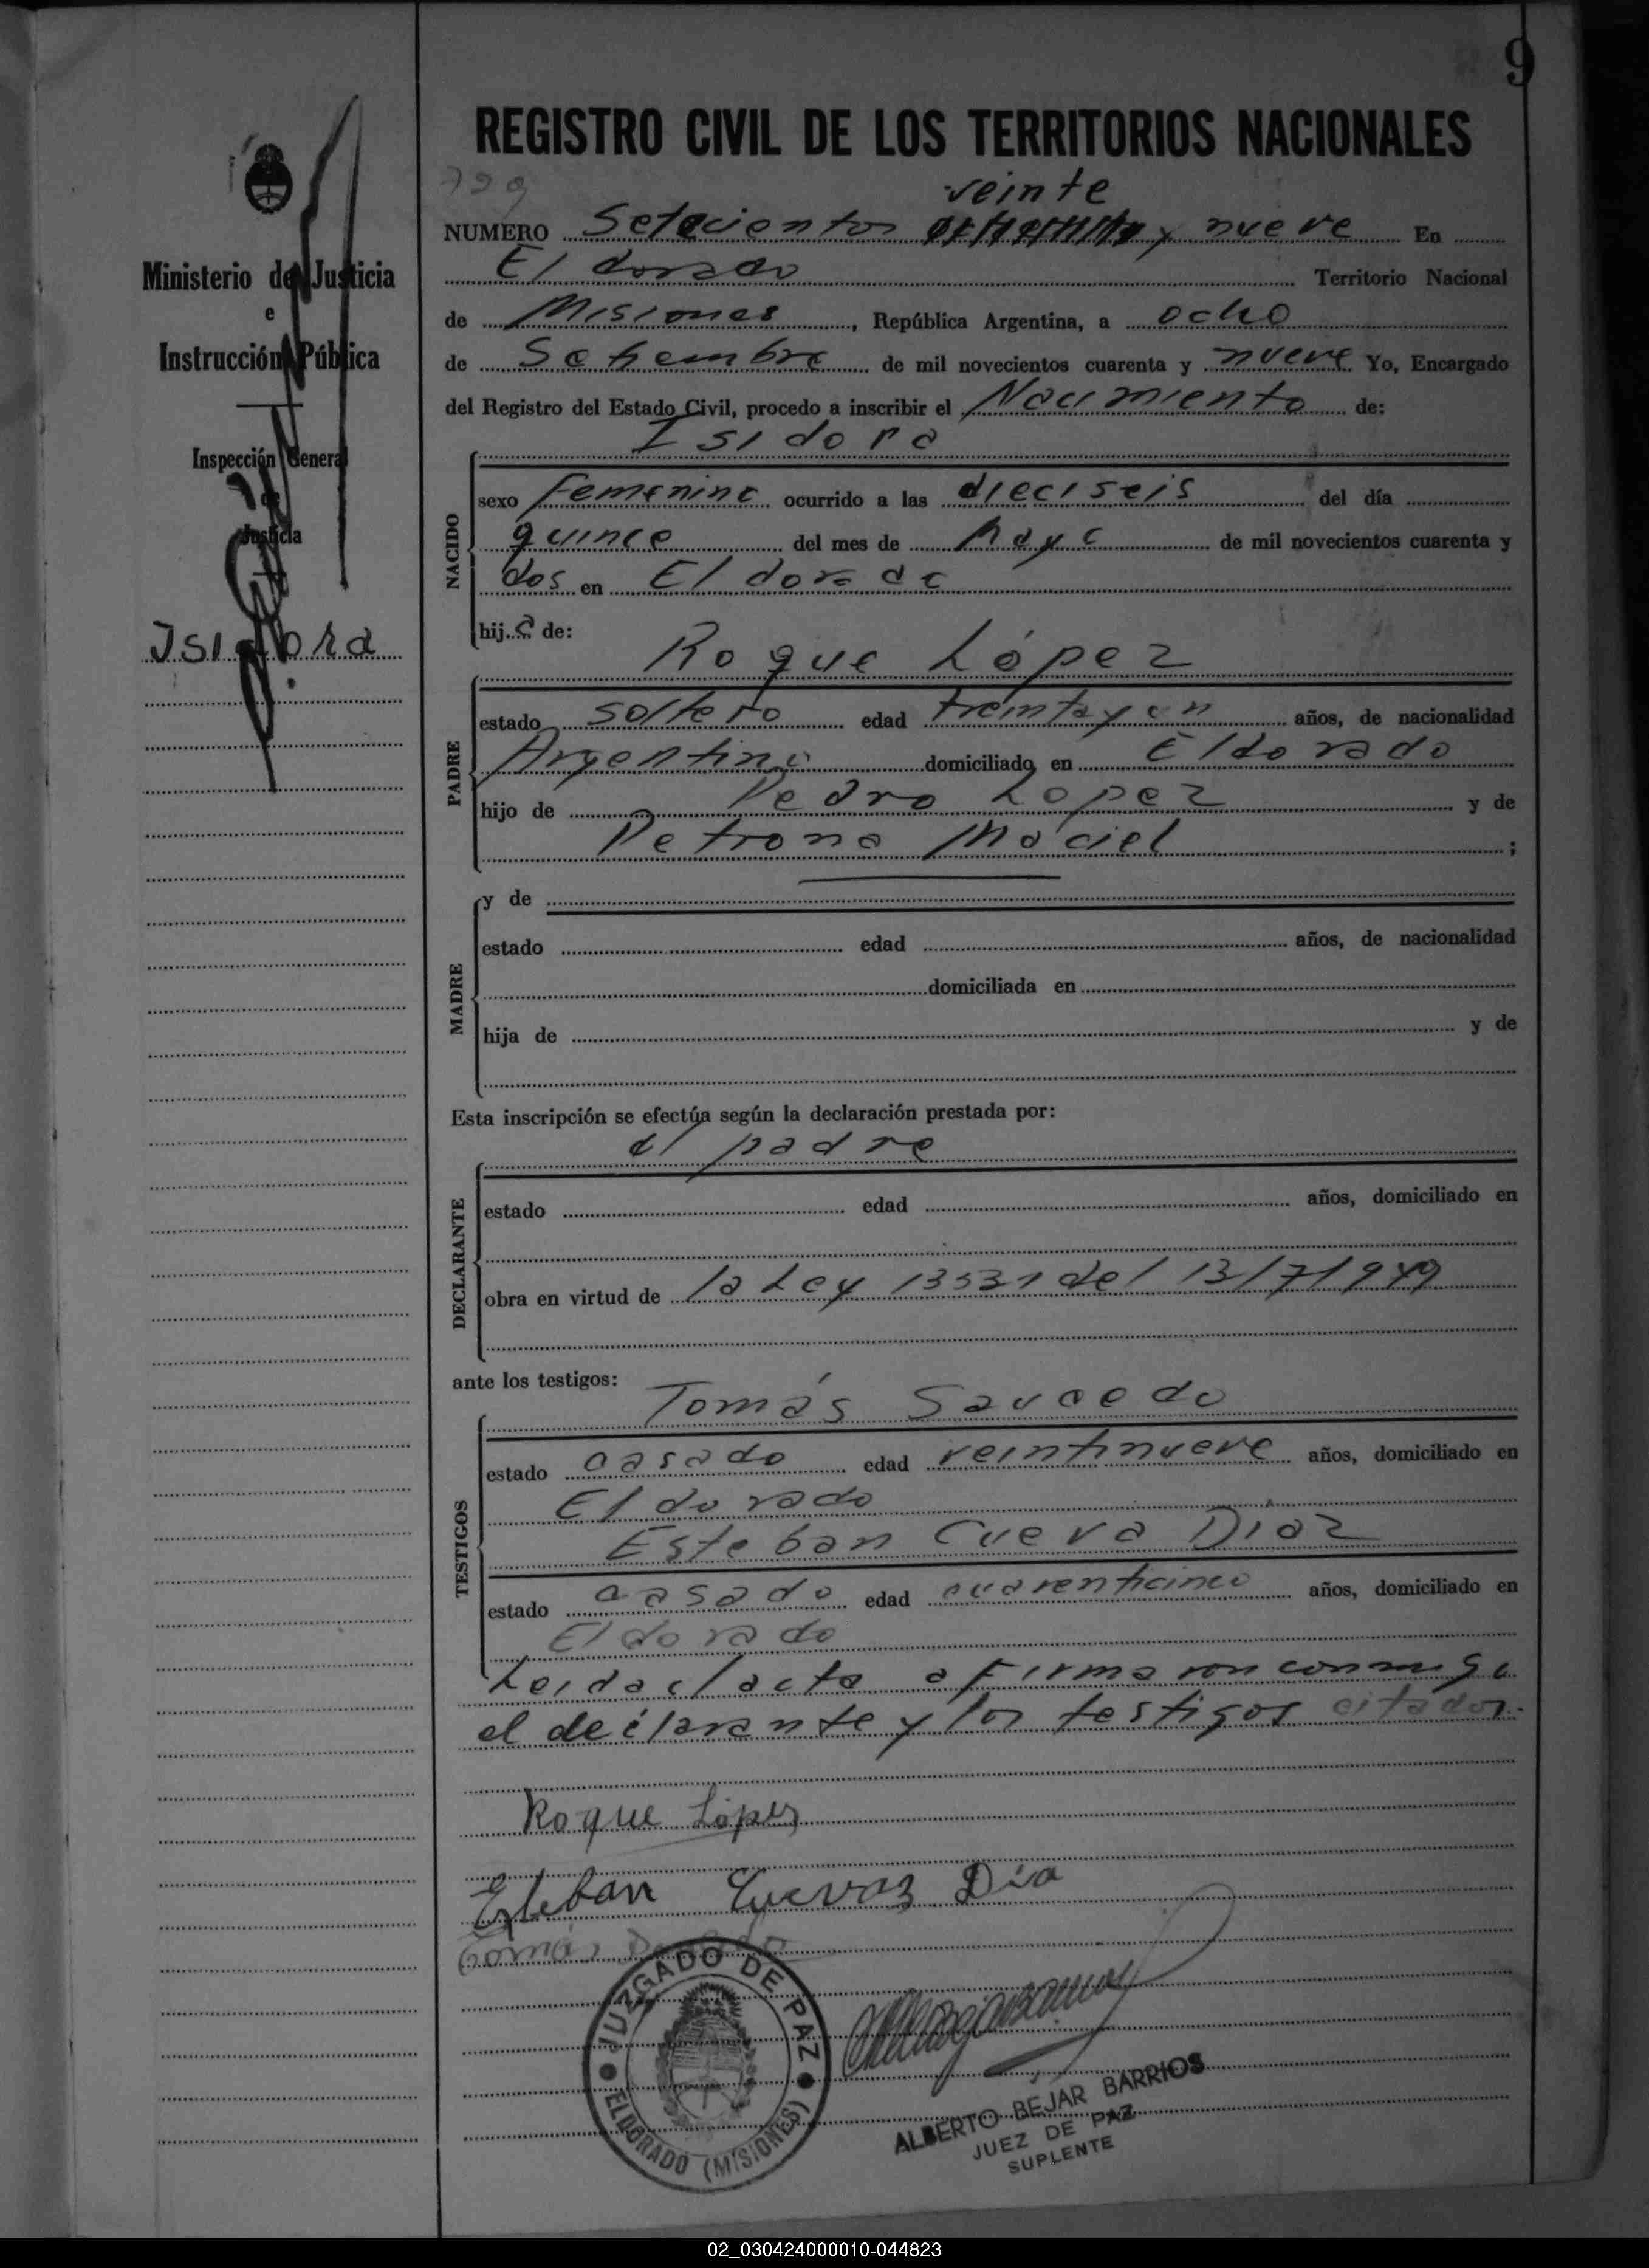 9
REGISTRO CIVIL DE LOS TERRITORIOS NACIONALES
729
veinte
NUMERO Setecientos y nueve En
Eldorado Territorio Nacional
de Misiones, República Argentina, a ocho
de Setiembre de mil novecientos cuarenta y nueve Yo, Encargado
del Registro del Estado Civil, procedo a inscribir el Nacimiento de:
Isidora
NACIDO
sexo femenino ocurrido a las dieciseis del día
quince del mes de Mayo de mil novecientos cuarenta y
dos en Eldorado
hija de:
Roque López
PADRE
estado soltero edad treintayun años, de nacionalidad
Argentina domiciliado en Eldorado
hijo de Pedro Lopez y de
Petrona Maciel ;
MADRE
y de
estado edad años, de nacionalidad
domiciliada en
hija de y de
Esta inscripción se efectúa según la declaración prestada por:
el padre
DECLARANTE
estado edad años, domiciliado en
obra en virtud de la Ley 13531 del 13/7/949
ante los testigos:
Tomás Saucedo
TESTIGOS
estado casado edad veintinueve años, domiciliado en
Eldorado
Esteban Cueva Diaz
estado casado edad cuarenticinco años, domiciliado en
Eldorado
Leida el acta firmaron conmigo
el declarante y los testigos citados.
Roque López
Esteban Cuevaz Día
Tomás
JUZGADO DE PAZ
ELDORADO (MISIONES)
ALBERTO BEJAR BARRIOS
JUEZ DE PAZ
SUPLENTE
Ministerio de Justicia
e
Instrucción Pública
Inspección General
de
Justicia
Isidora
02_030424000010-044823